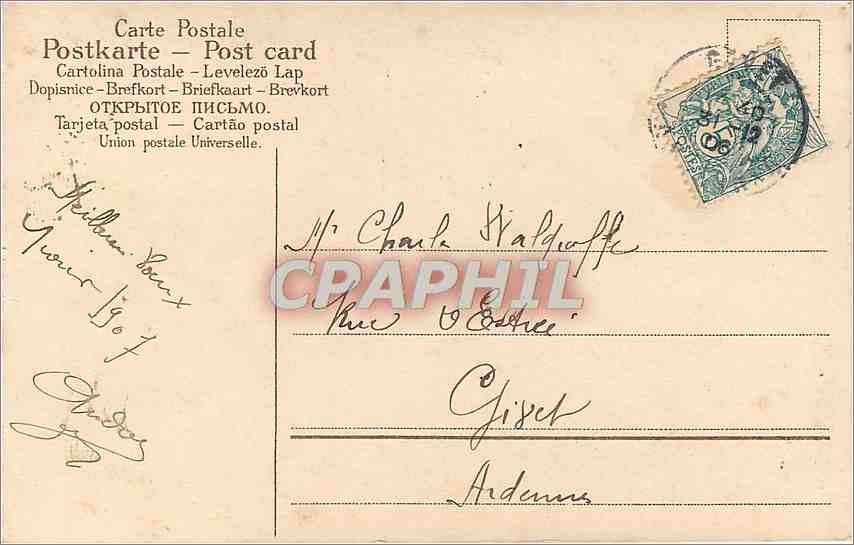 Carte Postale
Postkarte — Post card
Cartolina Postale - Levelezö Lap
Dopisnice - Brefkort - Briefkaart - Brevkort
ОТКРЫТОЕ ПИСЬМО.
Tarjeta postal — Cartão postal
Union postale Universelle.
POSTES
40
31 12
06
Meilleurs Voeux
1907
Mr Charle
CPAPHIL
Rue d'Estrée
Givet
Ardennes